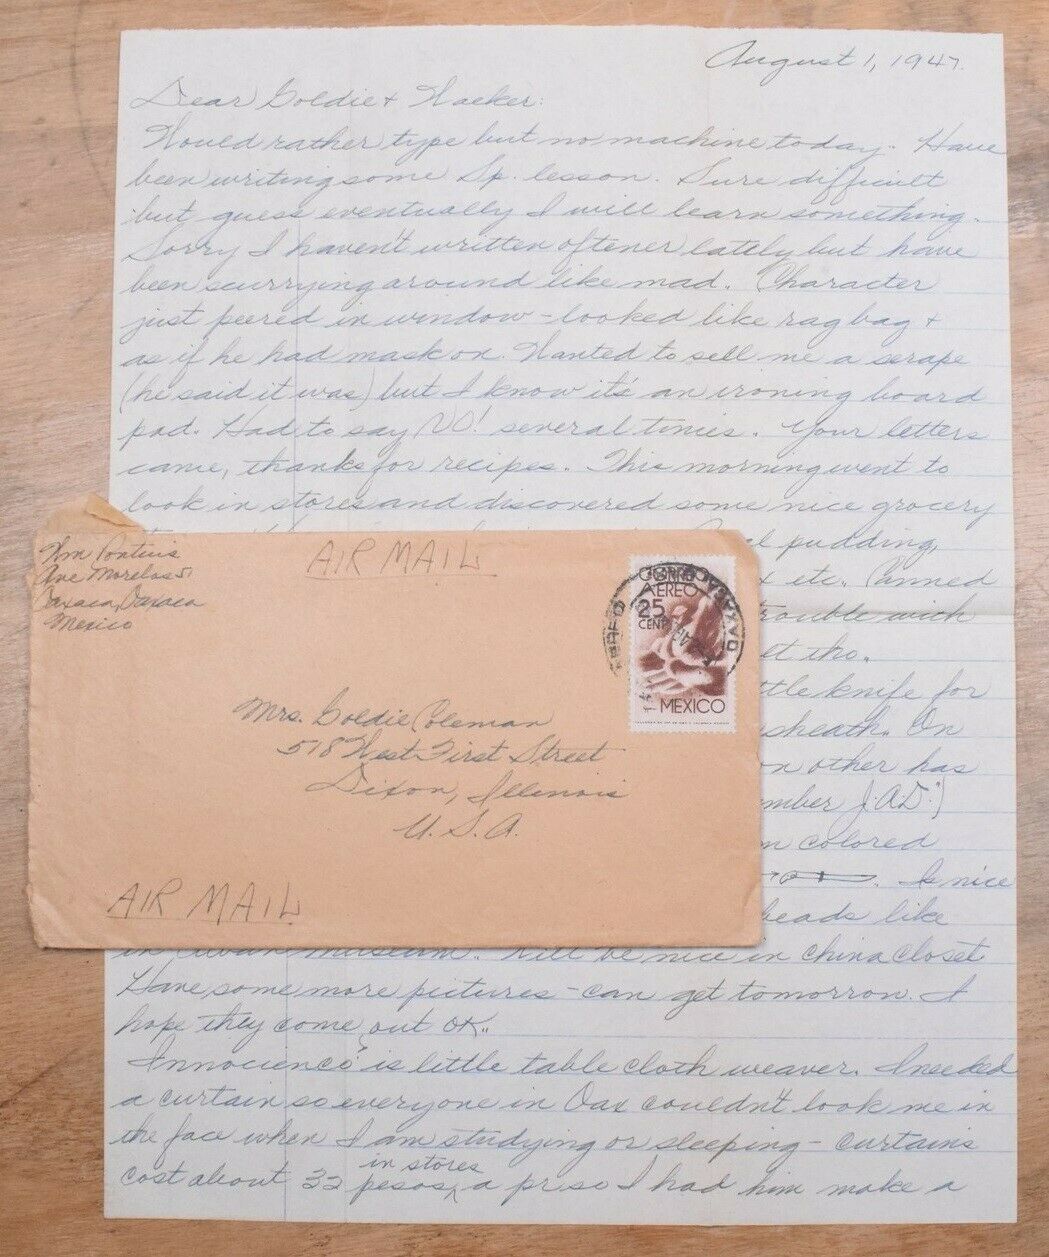 August 1, 1947.
Dear Goldie +
Would rather type but no machine today. Have
been writing some Sp. lesson. Sure difficult
but guess eventually I will learn something.
Sorry I haven't written oftener lately but have
been scurrying around like mad. Character
just peered in window - looked like rag bag +
as if he had mask on. Wanted to sell me a serape
(he said it was) but I know it's an ironing board
pad. Had to say NO! several times. Your letters
came, thanks for recipes. This morning went to
look in stores and discovered some nice grocery
pudding,
etc. Canned
trouble with
tho.
knife for
sheath. On
on other has
J.A.D.")
colored
. Is nice
heads like
in museum. Will be nice in china closet.
Have some more pictures - can get tomorrow. I
hope they come out OK.
Innocienco is little table cloth weaver. I needed
a curtain so everyone in Oax couldn't look me in
the face when I am studying or sleeping - curtains
in stores
cost about 32 pesos, a pr. so I had him make a
Wm Pontius
Ave Morelos 51
Oaxaca, Oaxaca
Mexico
AIR MAIL
CORREO
AEREO
25
CENT
MEXICO
Mrs. Goldie Coleman
518 West First Street
Dixon, Illinois
U.S.A.
AIR MAIL